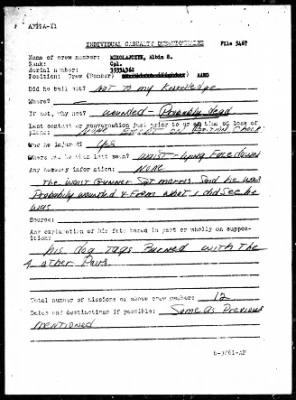 AFPPA-11
INDIVIDUAL CASUALTY QUESTIONNAIRE File 5467
Name of crew member: MIKOLAJCZYK, Albin S.
Rank: Cpl.
Serial number:
Position: Crew (Bomber)
Did he bail out? Not to my Knowledge
Where?
If not, why not? wounded - Possibly dead
Last contact or conversation just prior to or at time of loss of
plane: None Except on Position Check
Was he injured? Yes
Where was he when last seen? waist - lying Face down
Any hearsay information: None
The waist Gunner Sgt Said he was
Probably wounded & From what I did See he
was.
Source:
Any explanation of his fate based in part or wholly on supposi-
tion:
his dog tags Burned with the
other Pairs.
Total number of missions of above crew member: 12
Dates and destinations if possible: Same as Previous
mentioned
6-3861-AF